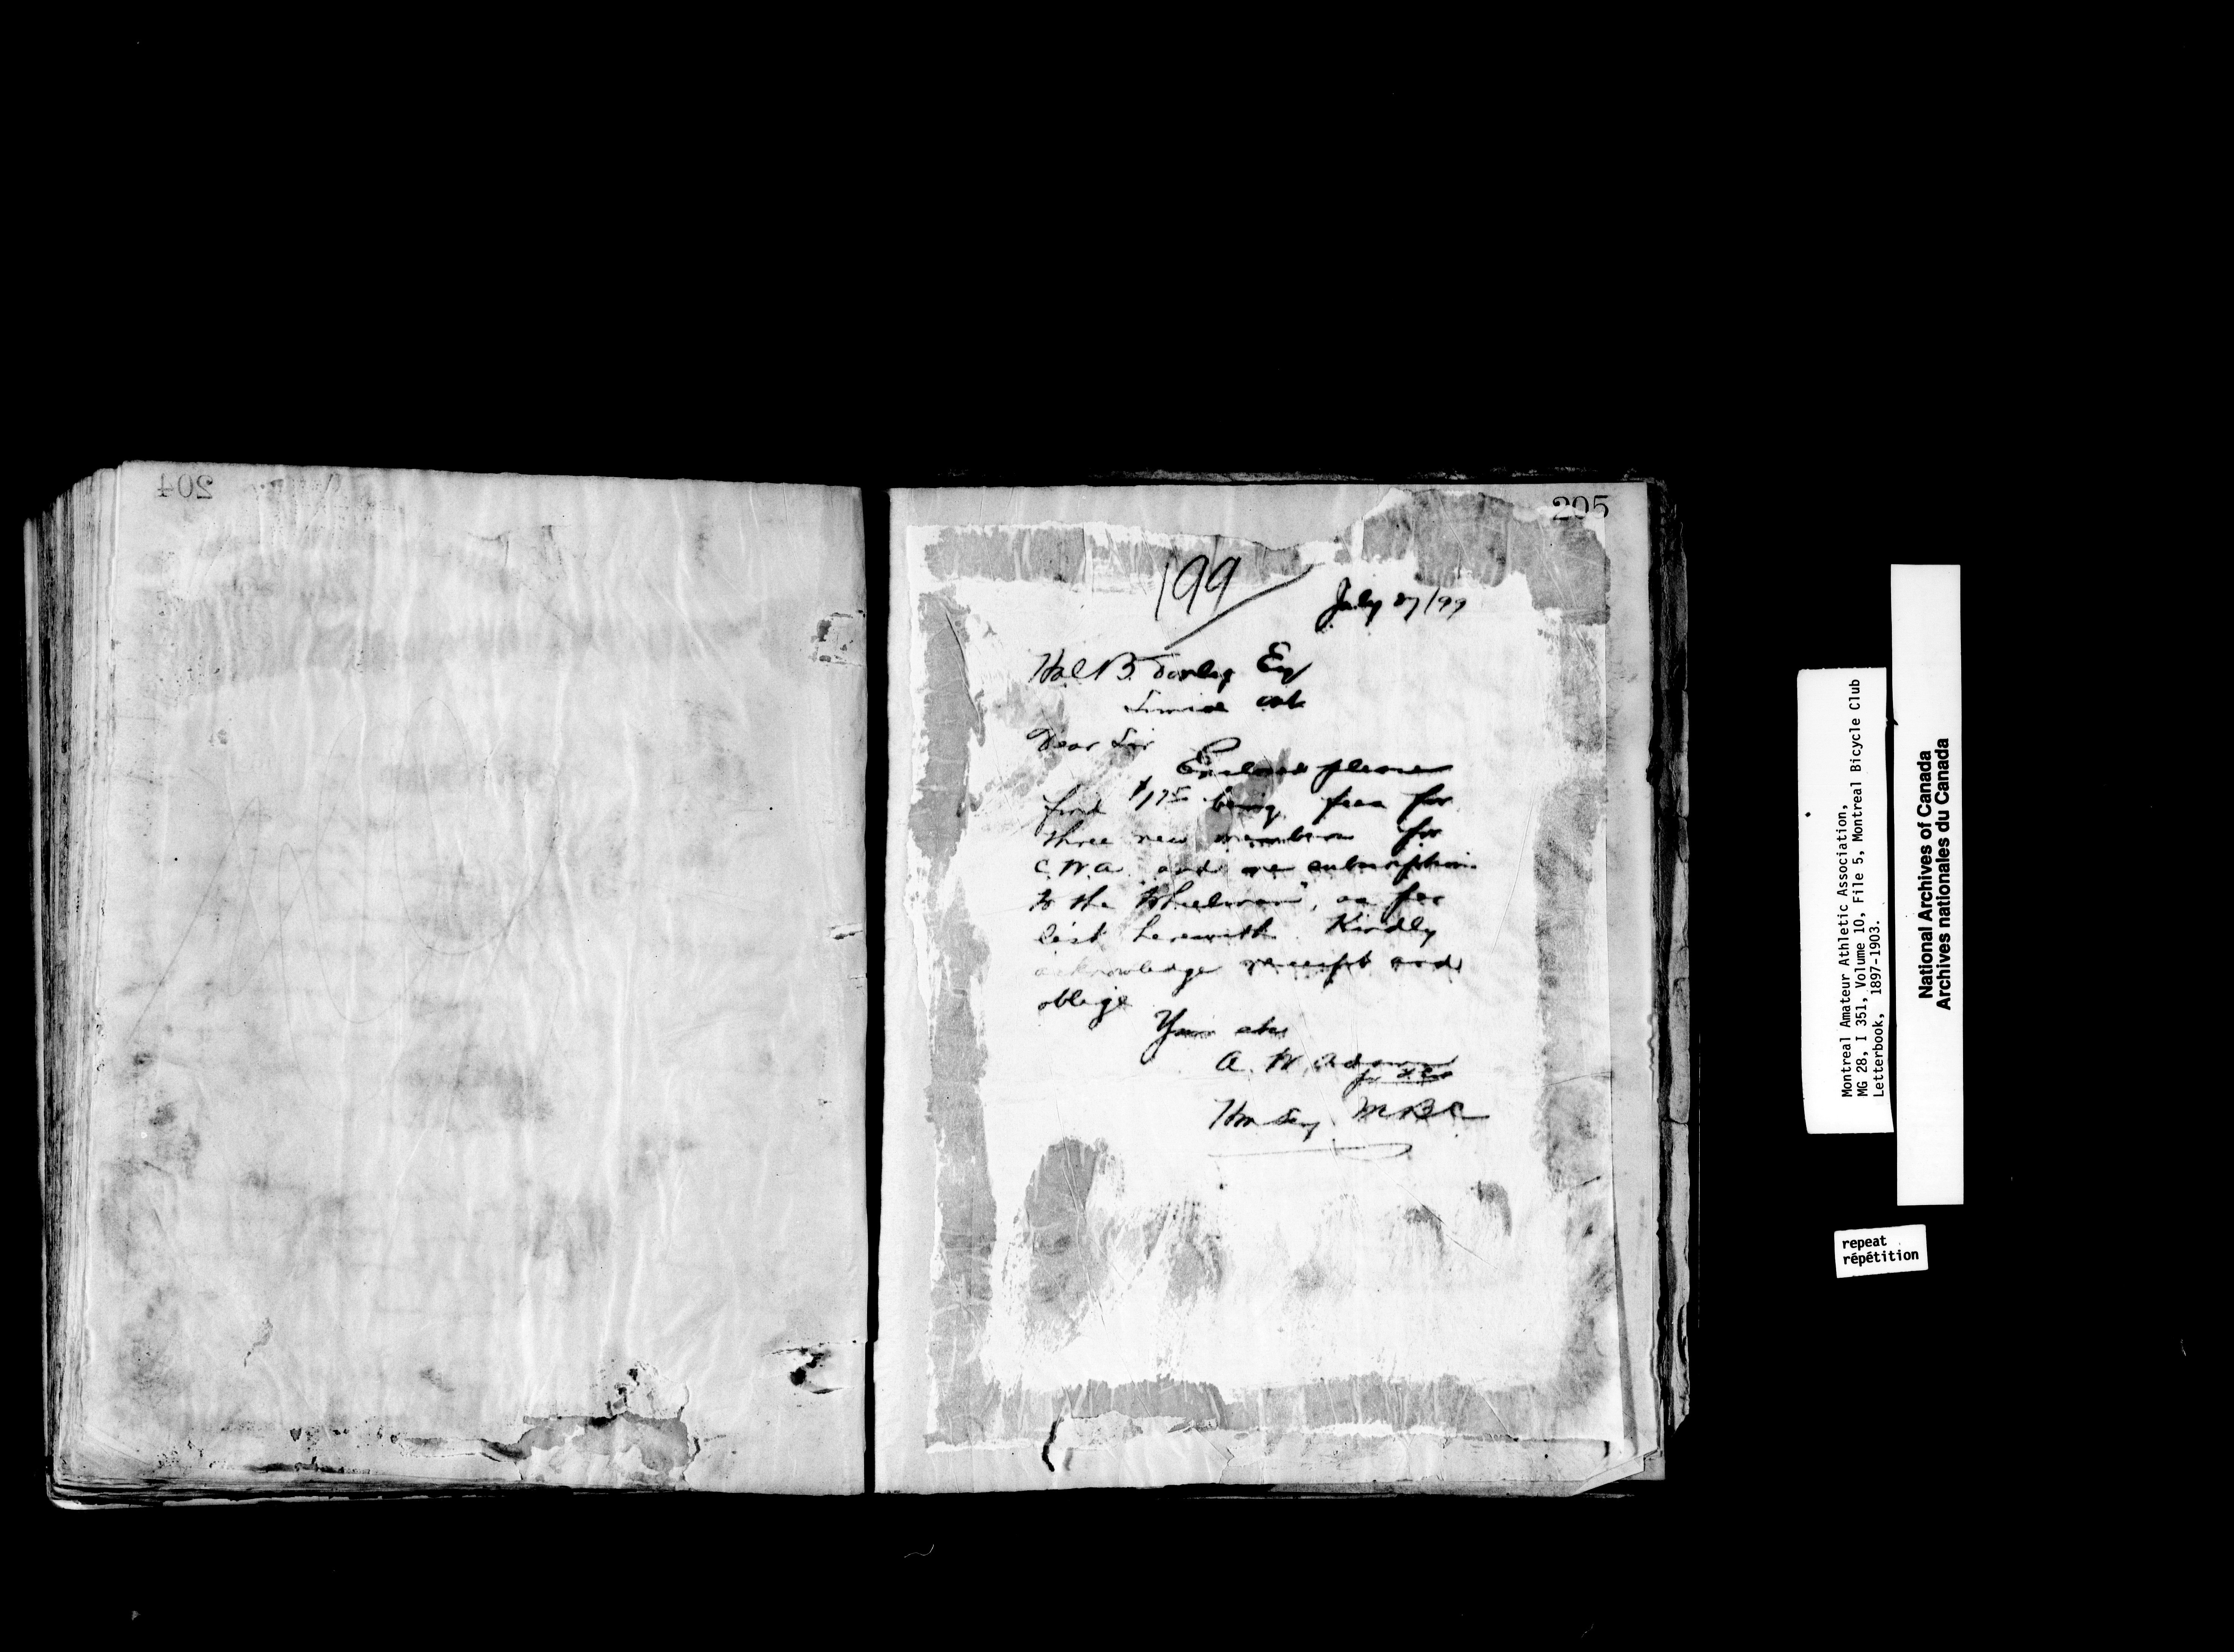 204
205
199
July 27/99
Hal B. Donly Esq
Simcoe Ont
Dear Sir
Enclosed please
find $1.75 being fees for
three new members for
C.W.A. and one subscription
to the "Wheelman", as per
list herewith. Kindly
acknowledge receipt and
oblige
Yours etc
A. W. Adams
Hon Secy. M.B.C
Montreal Amateur Athletic Association,
MG 28, I 351, Volume 10, File 5, Montreal Bicycle Club
Letterbook, 1897-1903.
National Archives of Canada
Archives nationales du Canada
repeat
répétition